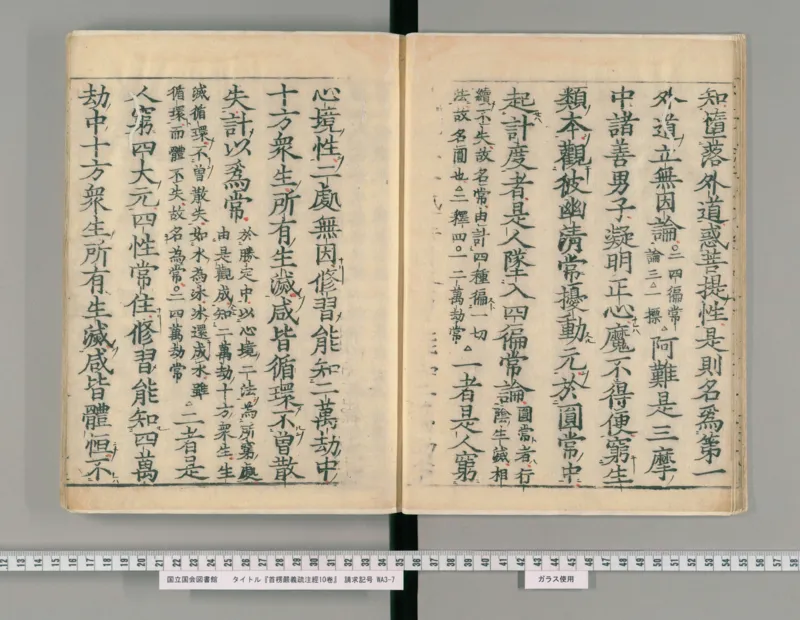 知墮落外道惑菩提性是則名爲第一
外道立無因論
○二四徧常
論三○一標
阿難是三摩
中諸善男子凝明正心魔不得便窮生
類本觀彼幽清常擾動元於圓常中
起計度者是人墜入四徧常論
圓常者行
陰生滅相
續不失故名常由計四種徧一切
法故名圓也○二釋四○一二萬劫常
一者是人窮
心境性二處無因修習能知二萬劫中
十方衆生所有生滅咸皆循環不曾散
失計以爲常
於勝定中以心境二法爲所窮處
由是觀成知二萬劫十方衆生生
滅循環不曾散失如水為冰冰還成水雖
循環而體不失故名為常○二四萬劫常
二者是
人窮四大元四性常住修習能知四萬
劫中十方衆生所有生滅咸皆體恒不
国立国会図書館 タイトル『首楞嚴義疏注經10巻』 請求記号 WA3-7
ガラス使用